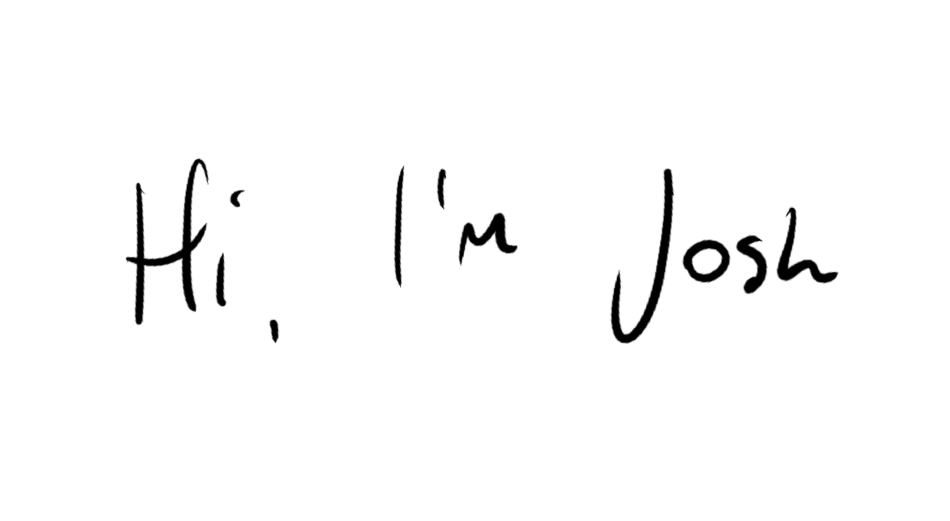 Hi, I'm Josh